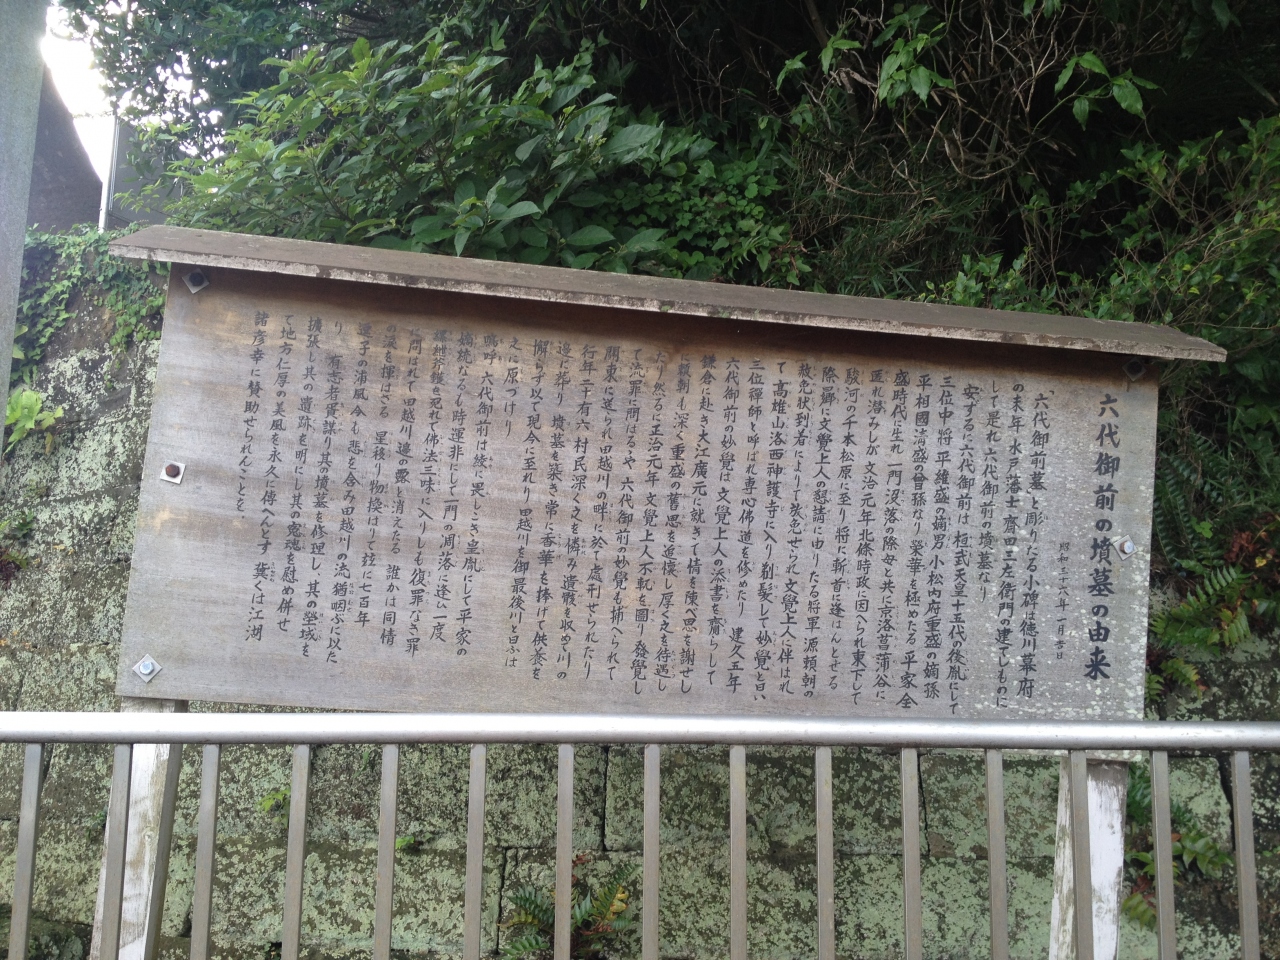 六代御前の墳墓の由来
昭和三十六年一月吉日
「六代御前墓」と彫りたる小碑は徳川幕府
の末年 水戸藩士 齋田三左衛門の建てしものに
して是れ六代御前の墳墓なり
安ずるに六代御前は桓武天皇十五代の後胤にして
三位中将平維盛の嫡男小松内府重盛の嫡孫
平相國清盛の曾孫なり 榮華を極めたる平家全
盛時代に生れ 一門沒落の際母と共に京洛菖蒲谷に
匿れ潜みしが 文治元年北條時政に因へられ東下して
駿河の千本松原に至り将に斬首に逢はんとせる
際郷に文覺上人の懇請に由りたる将軍源頼朝の
赦免状到着によりて放免せられ文覺上人に伴はれ
て高雄山洛西神護寺に入り剃髪して妙覺と曰い
三位禪師と呼ばれ専心佛道を修めたり 建久五年
六代御前の妙覺は文覺上人の添書を齎らして
鎌倉に赴き大江廣元に就きて情を陳べ恩を謝せし
に頼朝も深く重盛の舊恩を追懐し厚く之を待遇し
たり然るに正治元年文覺上人不軌を圖り發覺し
て流罪に問はるゝや六代御前の妙覺も捕へられて
關東に送られ田越川の畔に於て處刑せられたり
行年二十有六 村民深く之を憐み遺骸を收めて川の
邊に葬り 墳墓を築き常に香華を捧げて供養を
懈らず以て現今に至れり田越川を御最後川と曰ふは
之に原づけり
嗚呼 六代御前は綾に畏しこき皇胤にして平家の
嫡統なるも時運非にして一門の凋落に逢ひ一度
縲絏斧鉞を免れて佛法三昧に入りしも復罪なき罪
に問はれて田越川邊の露と消えたる 誰かは同情
の涙を揮はざる 星移り物換はりて茲に七百年
逗子の浦風今も悲を含み田越川の流猶咽ぶに以た
り 有志者胥謀り其の墳墓を修理し其の塋域を
擴張し其の遺跡を明にし其の寃魂を慰め併せ
て地方仁厚の美風を永久に傳へんとす 冀くは江湖
諸彦幸に賛助せられんことを。